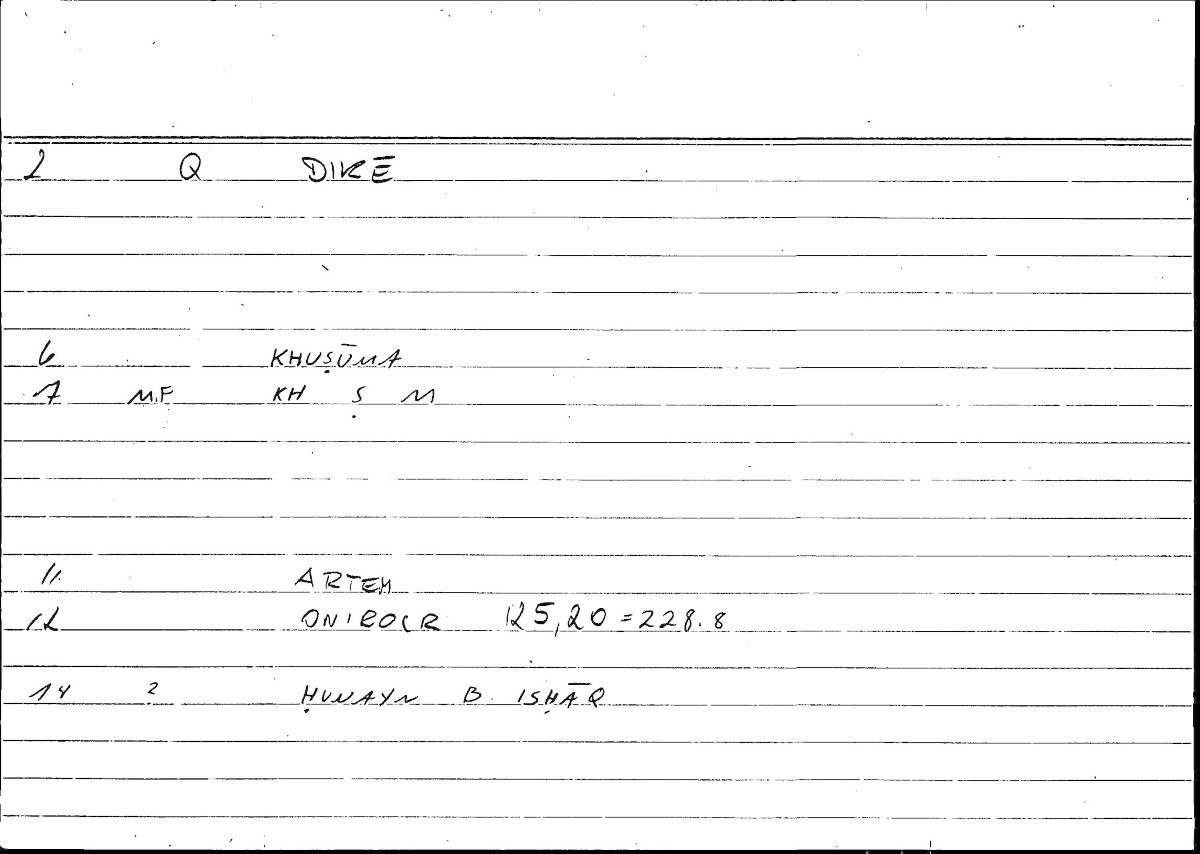 2 Q DIKĒ
6 KHUṢŪMA
7 M.F KH Ṣ M
11 ARTEM
12 ONIROCR 125,20 = 228.8
14 2 ḤUNAYN B. ISḤĀQ